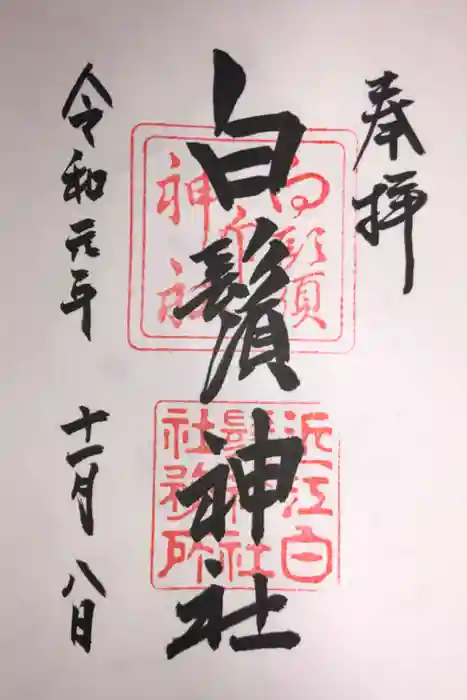 奉拝
白鬚神社
近江白
鬚神社
社務所
令和元年 十一月 八日